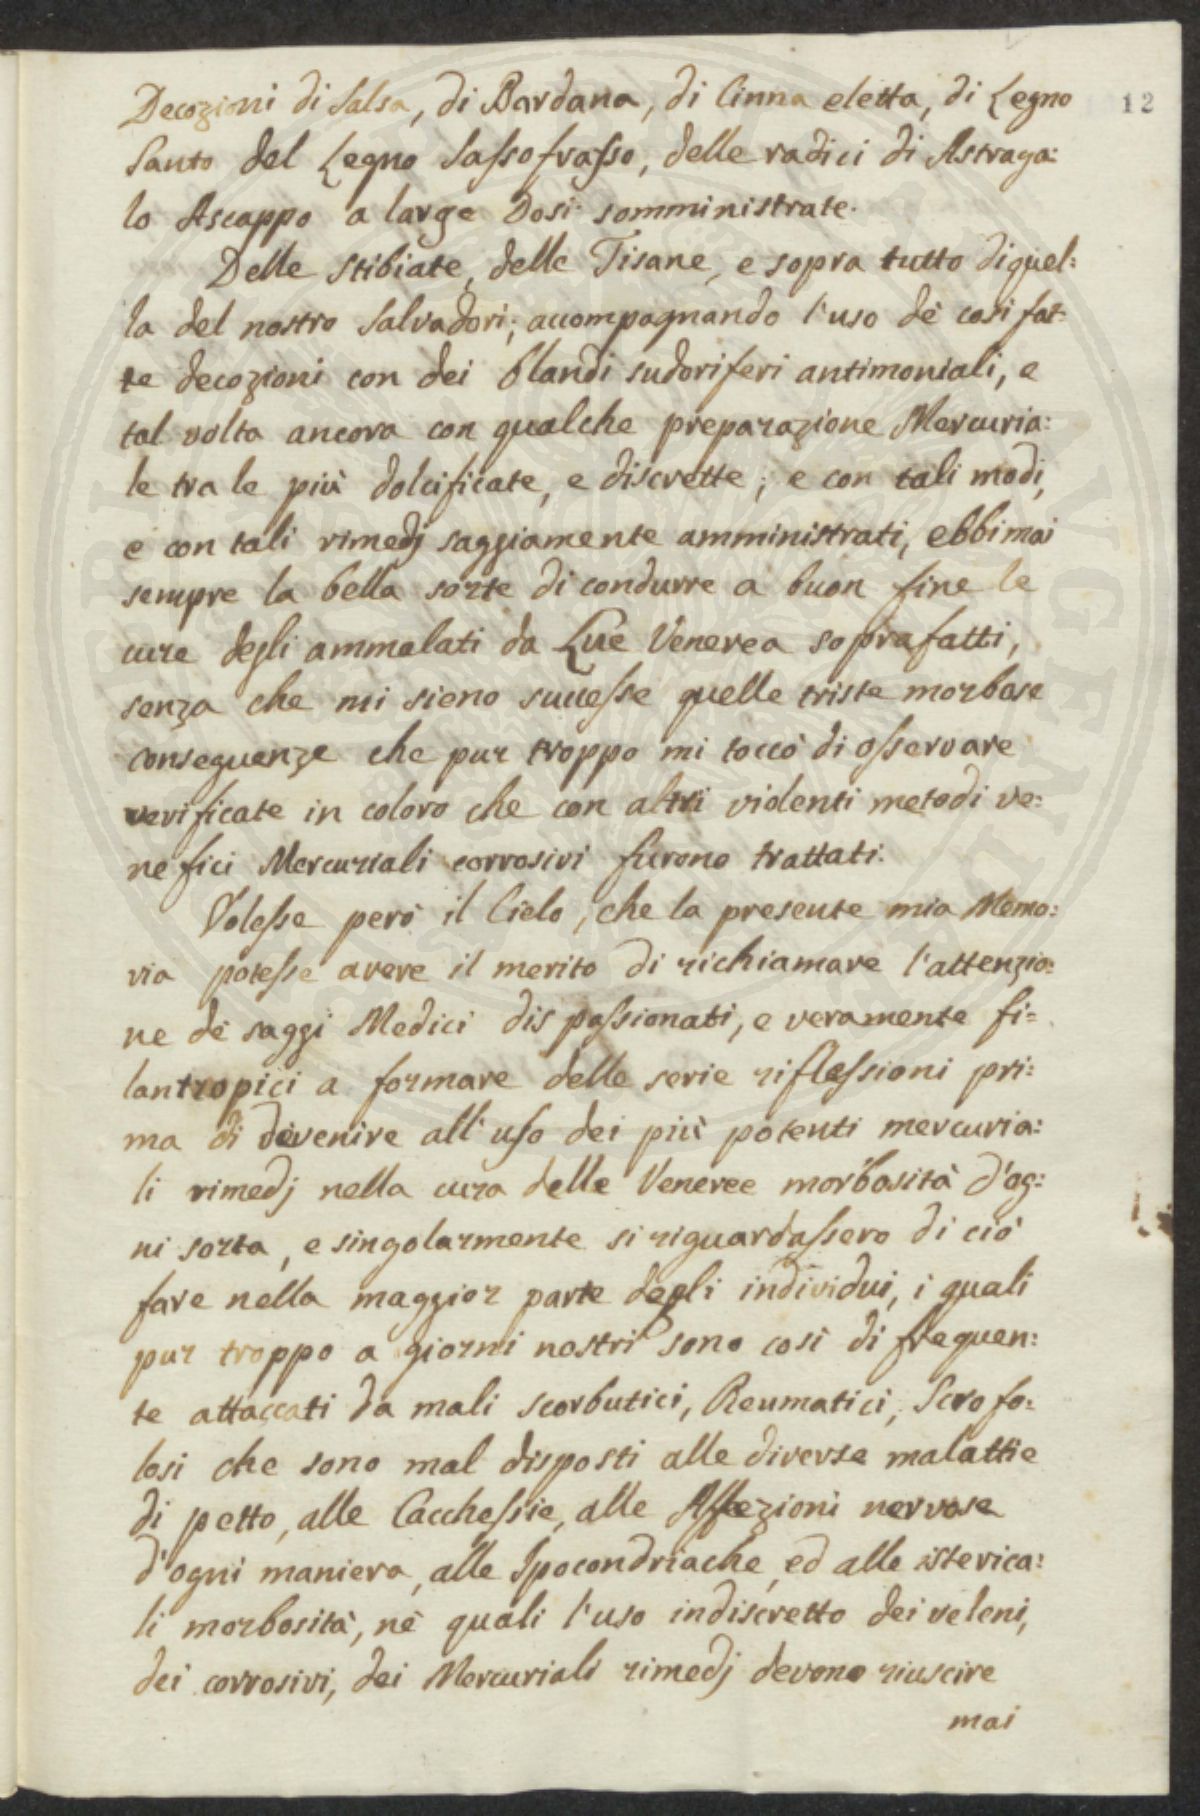 Decozioni di Salsa, di Bardana, di Cinna eletta, di Legno
12
Santo del Legno Sassofrasso, delle radici di Astraga:
lo Ascappo a large Dosi somministrate.
Delle stibiate, delle Tisane, e sopra tutto di quel:
la del nostro Salvadori; accompagnando l'uso dè così fat:
te decozioni con dei blandi sudoriferi antimoniali, e
tal volta ancora con qualche preparazione Mercuria:
le tra le più dolcificate, e discrette; e con tali modi,
e con tali rimedj saggiamente amministrati, ebbi mai
sempre la bella sorte di condurre a buon fine le
cure degli ammalati da Lue Venerea soprafatti,
senza che mi sieno successe quelle triste morbose
conseguenze che pur troppo mi toccò di osservare
verificate in coloro che con altri violenti metodi ve:
nefici Mercuriali corrosivi furono trattati.
Volesse però il Cielo, che la presente mia Memo:
ria potesse avere il merito di richiamare l'attenzio:
ne dè saggi Medici dispassionati, e veramente fi=
lantropici a formare delle serie riflessioni pri:
ma di devenire all'uso dei più potenti mercuria:
li rimedj nella cura delle Veneree morbosità d'og:
ni sorta, e singolarmente si riguardassero di ciò
fare nella maggior parte degli individui, i quali
pur troppo a giorni nostri sono così di frequen:
te attaccati da mali scorbutici, Reumatici, Scrofo:
losi che sono mal disposti alle diverse malattie
di petto, alle Cacchessie, alle Affezioni nervose
d'ogni maniera, alle Ipocondriache, ed alle isterica:
li morbosità, nè quali l'uso indiscretto dei veleni,
dei corrosivi, dei Mercuriali rimedj devono riuscire
mai